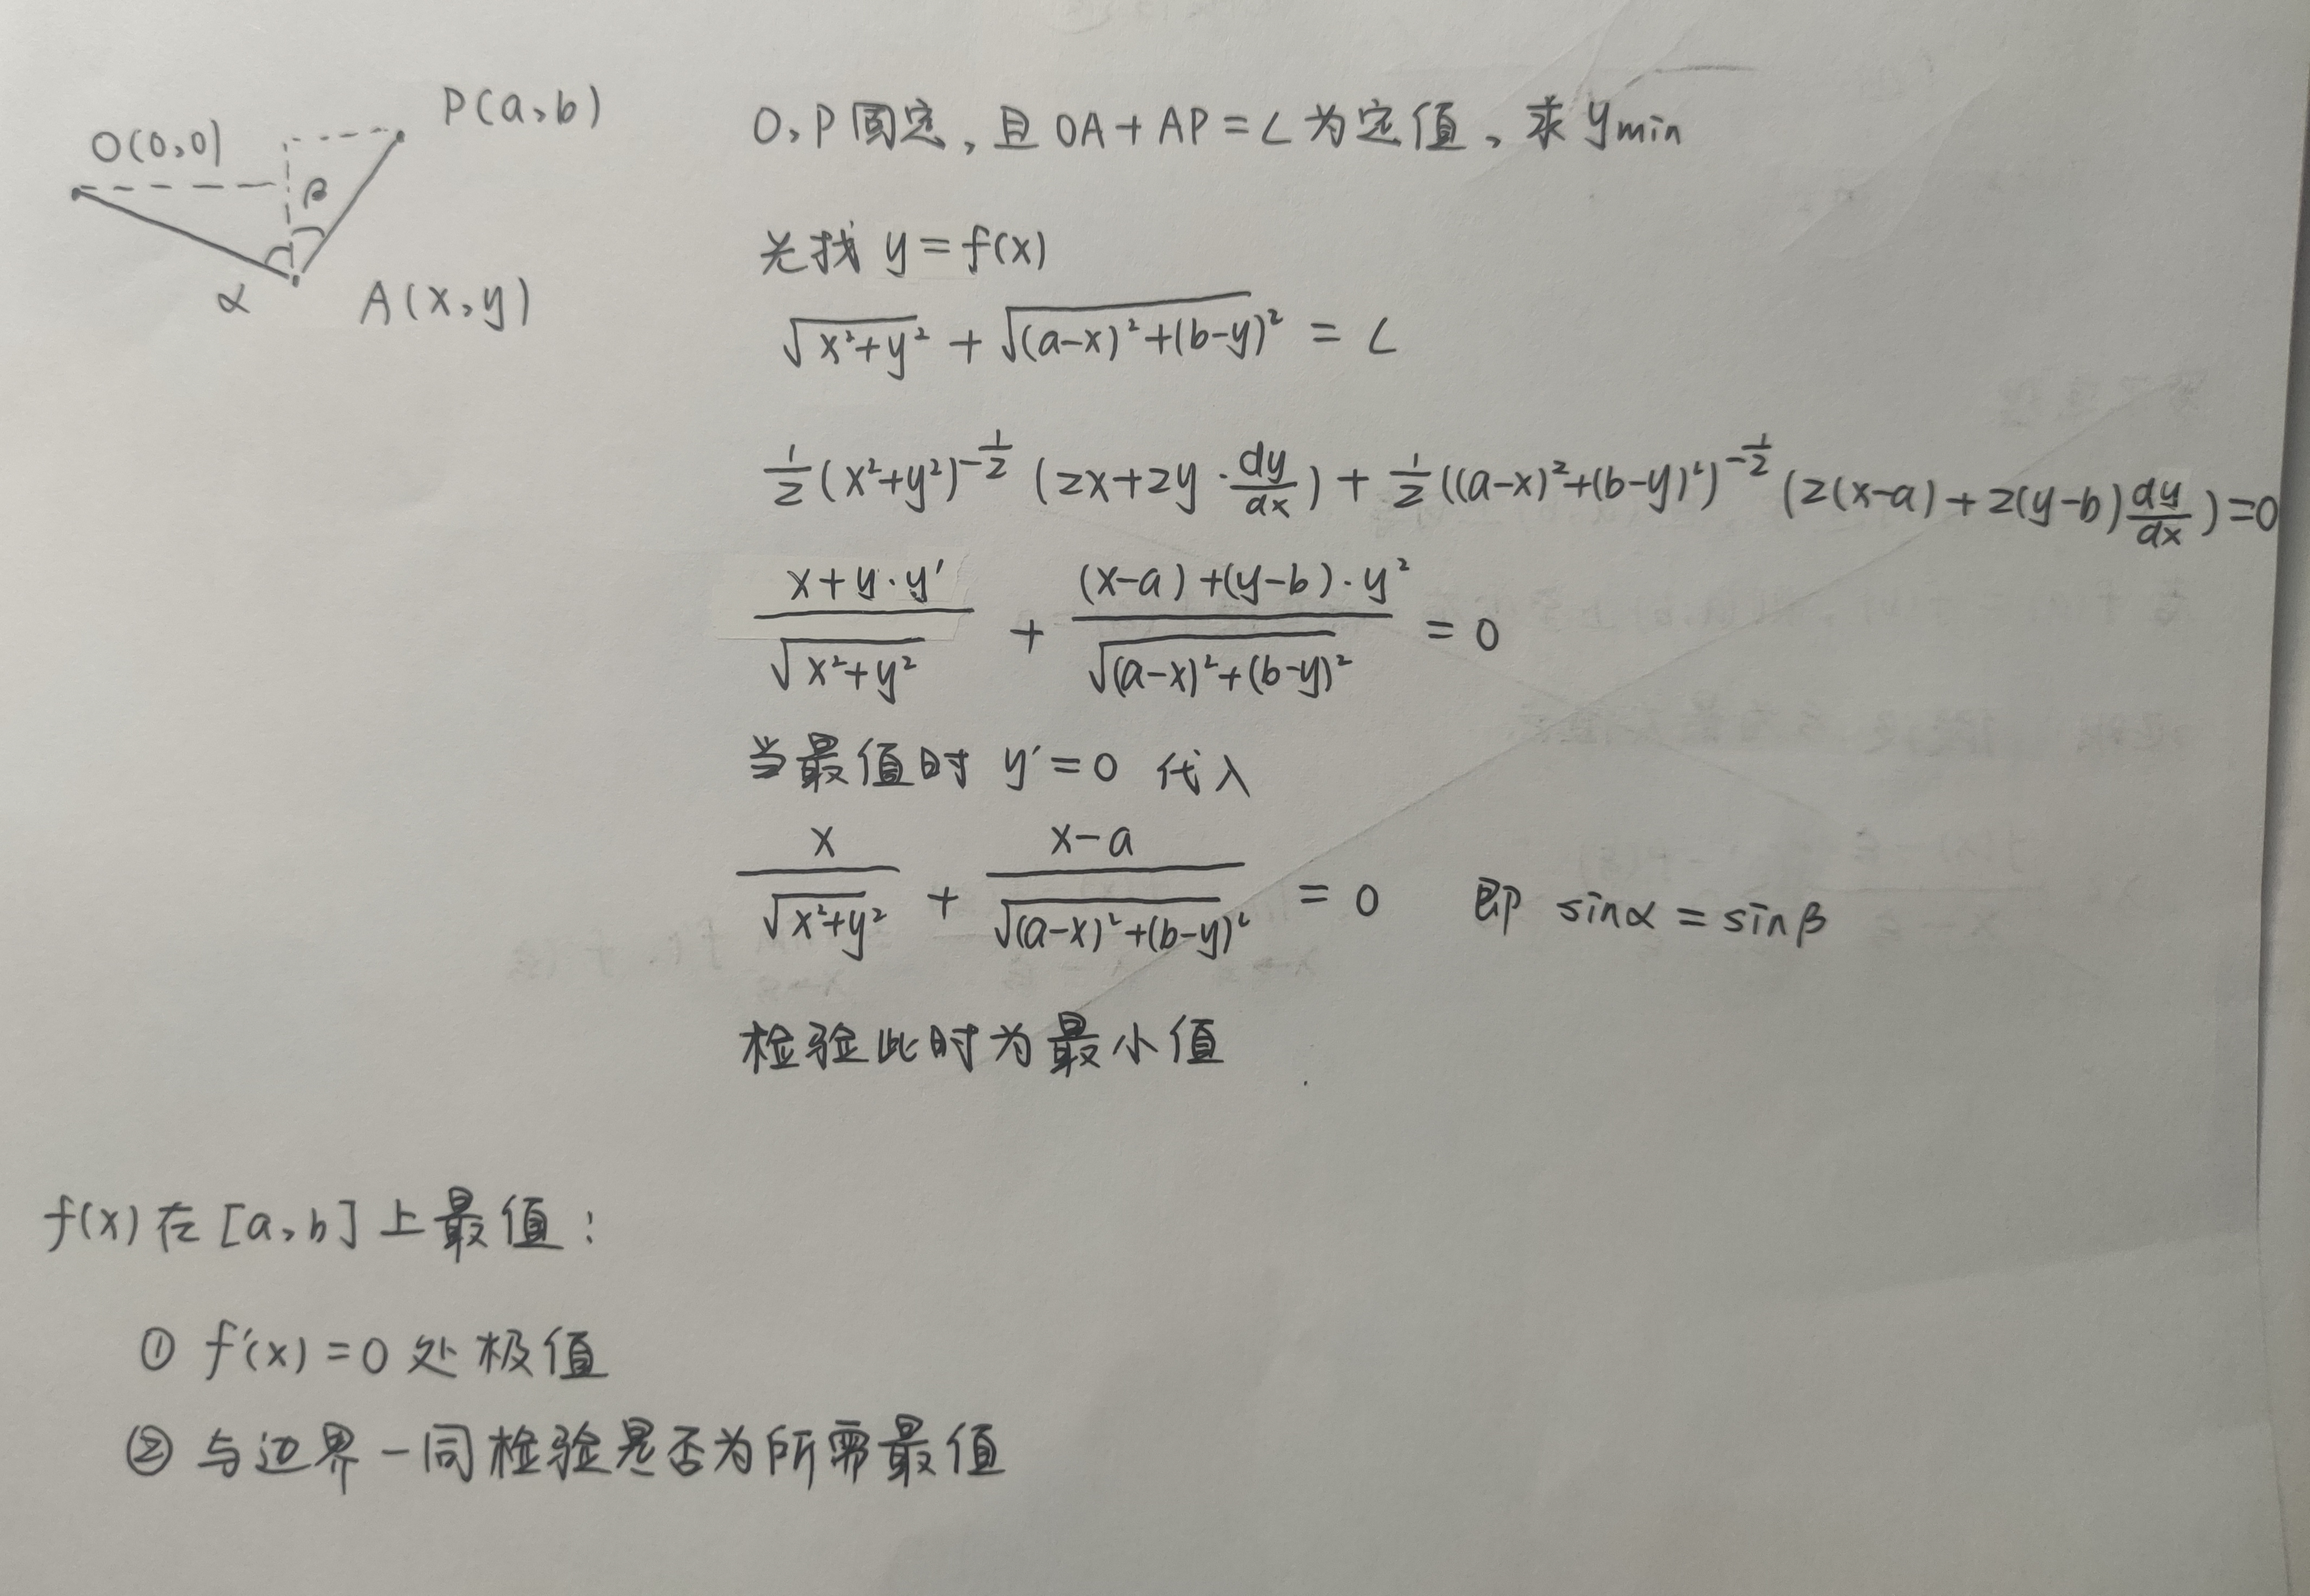 O(0,0)
P(a,b)
β
α
A(x,y)
O,P固定,且OA+AP=L为定值,求ymin
先找 y=f(x)
√(x²+y²) + √((a-x)²+(b-y)²) = L
½(x²+y²)^(-½) (2x+2y·dy/dx) + ½((a-x)²+(b-y)²)^(-½) (2(x-a)+2(y-b)dy/dx)=0
(x+y·y′)/√(x²+y²) + ((x-a)+(y-b)·y²)/√((a-x)²+(b-y)²) = 0
当最值时 y′=0 代入
x/√(x²+y²) + (x-a)/√((a-x)²+(b-y)²) = 0 即 sinα=sinβ
检验此时为最小值
f(x)在[a,b]上最值:
① f′(x)=0处极值
② 与边界一同检验是否为所需最值